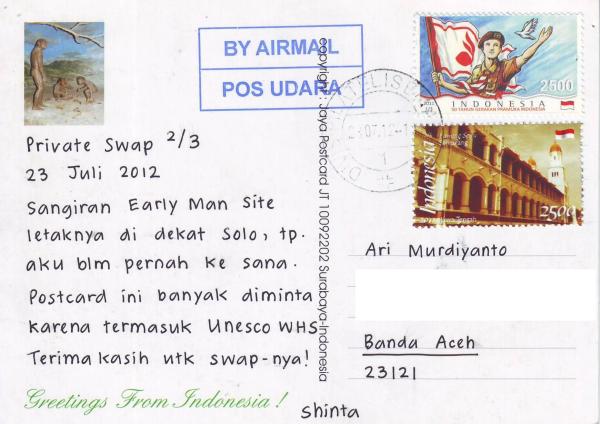 BY AIRMAIL
POS UDARA
2500
2011
INDONESIA
50 TAHUN GERAKAN PRAMUKA INDONESIA
Indonesia
Lawang Sewu
Semarang
Jawa Tengah
2500
23.07.12
1
Private Swap 2/3
23 Juli 2012
Sangiran Early Man Site
letaknya di dekat Solo, tp.
aku blm pernah ke sana.
Postcard ini banyak diminta
karena termasuk Unesco WHS
Terima kasih utk swap-nya!
Greetings From Indonesia !
Shinta
copyright Jaya Postcard JT 10092202 Surabaya-Indonesia
Ari Murdiyanto
Banda Aceh
23121